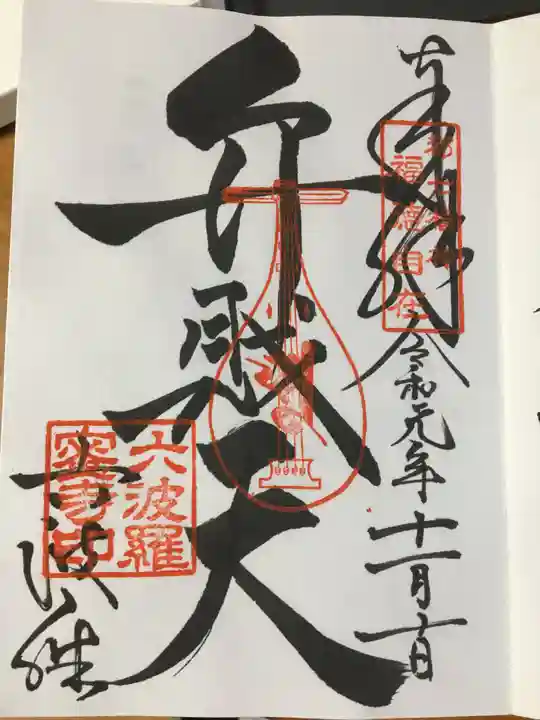 奉拝
令和元年十一月十日
福徳自在
弁財天
六波羅
密寺印
六波羅